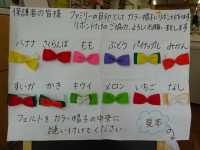 保護者の皆様
ファミリーの目印として カラー帽子にリボンを付けます
リボン付けのご協力、よろしくお願いします
バナナ さくらんぼ もも ぶどう パイナップル みかん
すいか かき キウイ メロン いちご なし
フェルトをカラー帽子の中央に
縫い付けてください
見本